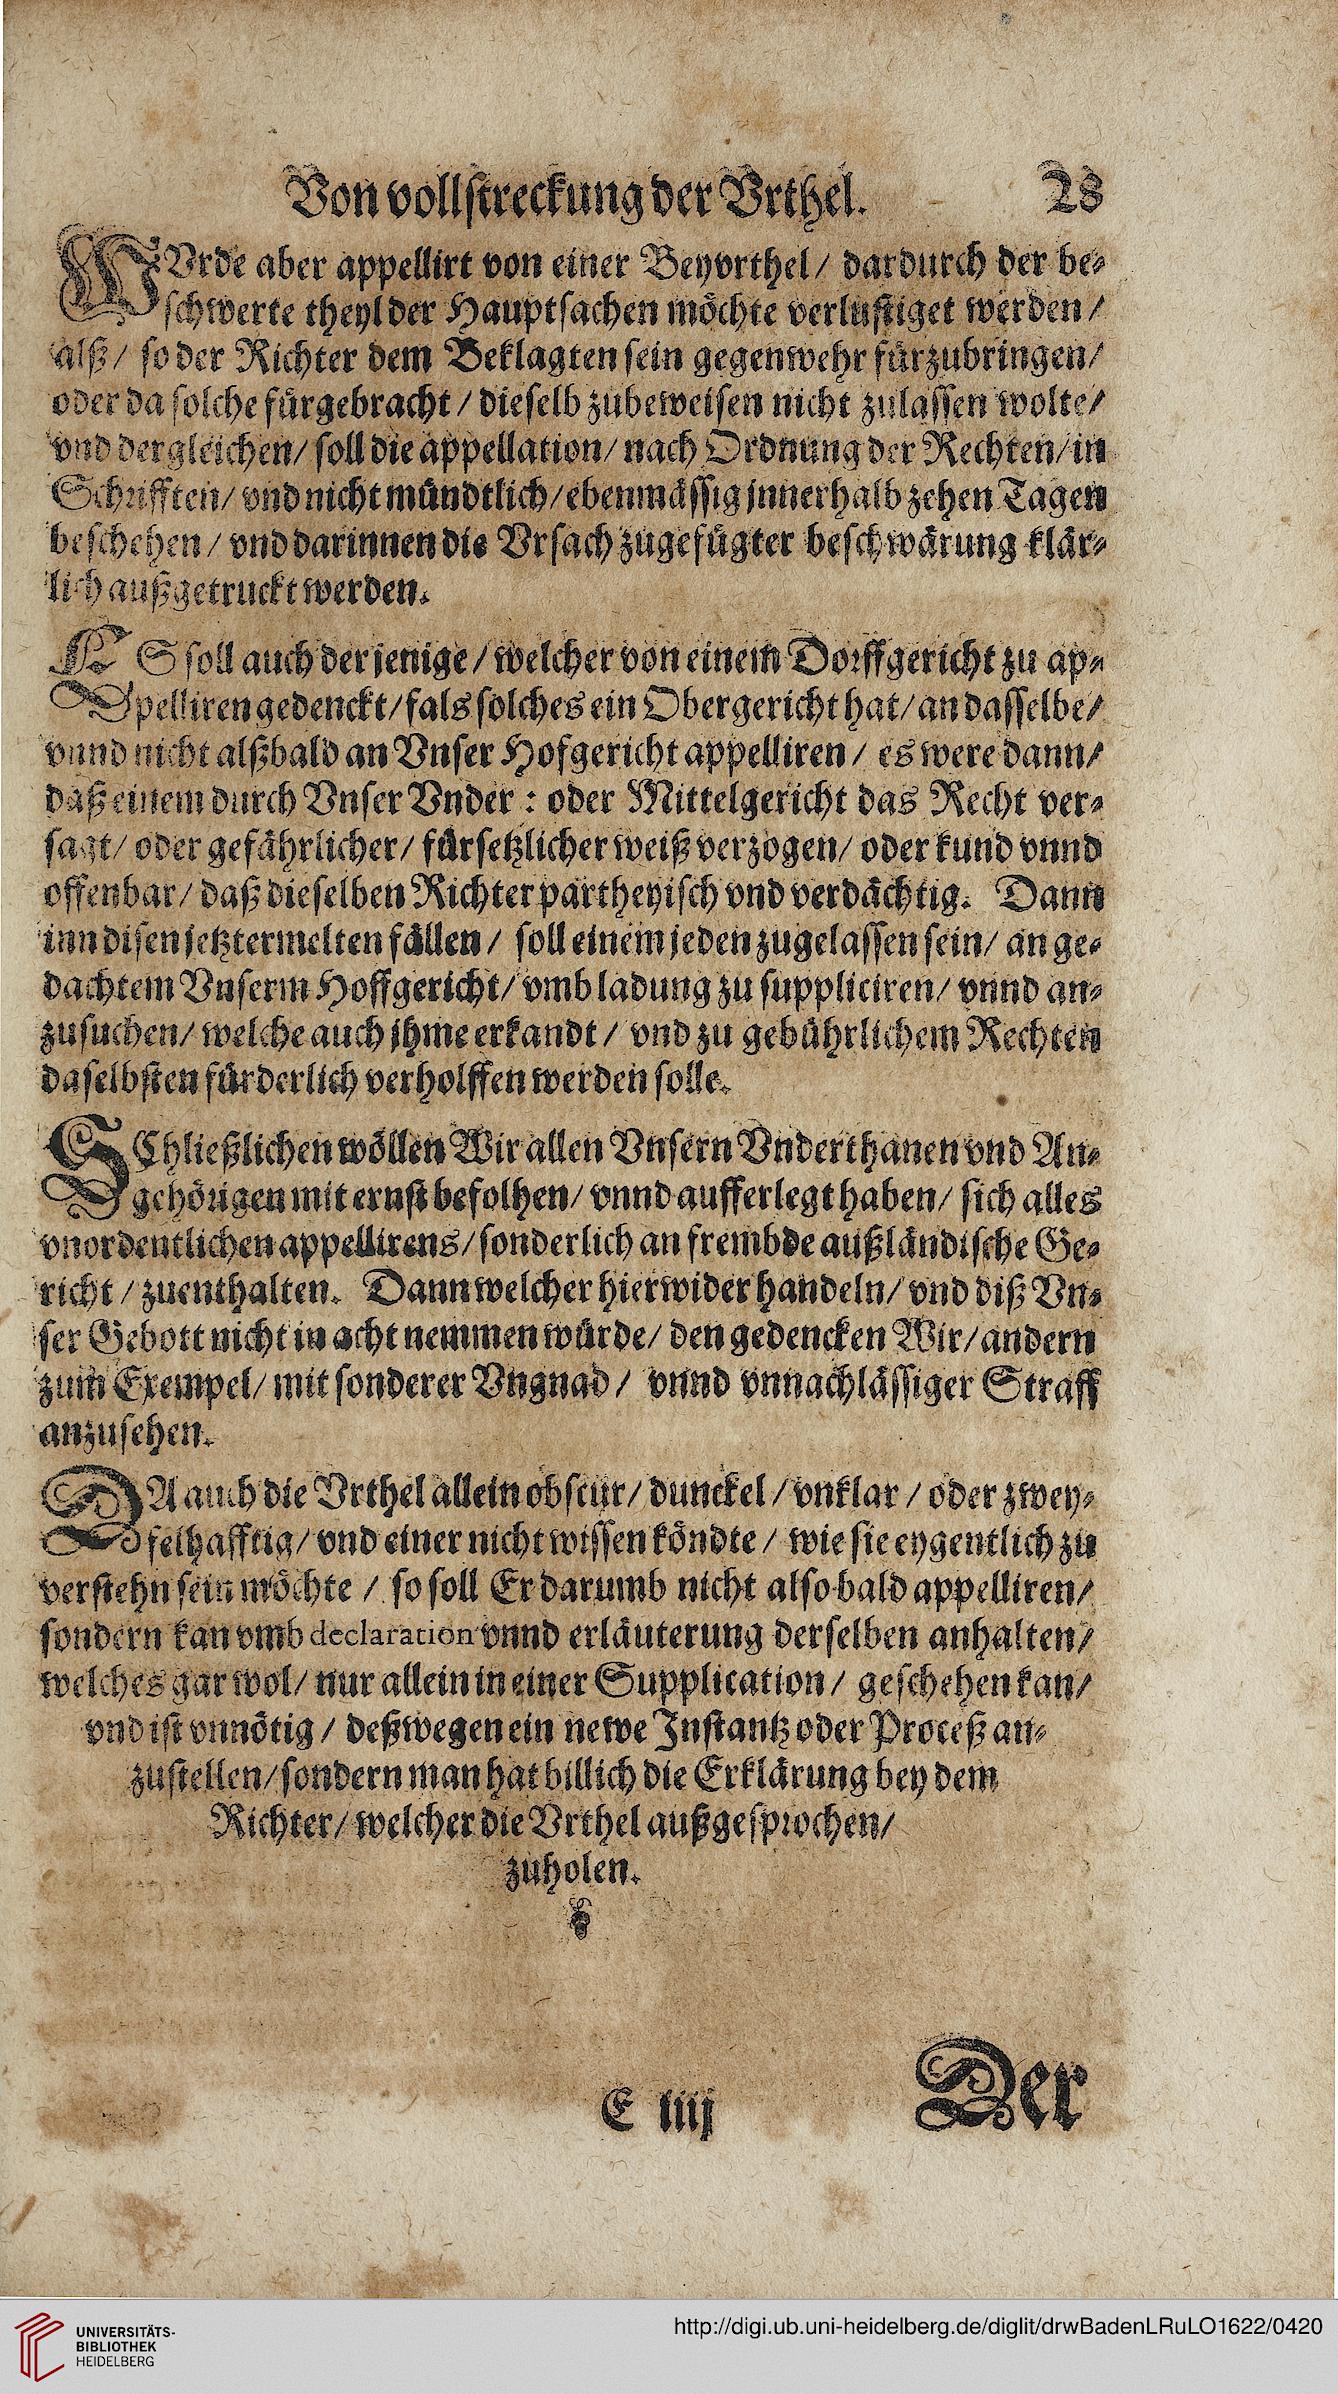 Von vollstreckung der Vrthel. 28
WVrde aber appellirt von einer Beyvrthel / dardurch der be-
schwerte theyl der Hauptsachen möchte verlustiget werden /
alß / so der Richter dem Beklagten sein gegenwehr fürzubringen /
oder da solche fürgebracht / dieselb zubeweisen nicht zulassen wolte /
vnd dergleichen / soll die appellation / nach Ordnung der Rechten / in
Schrifften / vnd nicht mündtlich / ebenmässig jnnerhalb zehen Tagen
beschehen / vnd darinnen die Vrsach zugefügter beschwärung klär-
lich außgetruckt werden.
ES soll auch der jenige / welcher von einem Dorffgericht zu ap-
pelliren gedenckt / fals solches ein Obergericht hat / an dasselbe /
vnnd nicht alßbald an Vnser Hofgericht appelliren / es were dann /
daß einem durch Vnser Vnder : oder Mittelgericht das Recht ver-
sagt / oder gefährlicher / fürsetzlicher weiß verzogen / oder kund vnnd
offenbar / daß dieselben Richter partheyisch vnd verdächtig. Dann
inn disen jetztermelten fällen / soll einem jeden zugelassen sein / an ge-
dachtem Vnserm Hoffgericht / vmb ladung zu suppliciren / vnnd an-
zusuchen / welche auch jhme erkandt / vnd zu gebührlichem Rechten
daselbsten fürderlich verholffen werden solle.
SChließlichen wöllen Wir allen Vnsern Vnderthanen vnd An-
gehörigen mit ernst befolhen / vnnd aufferlegt haben / sich alles
vnordentlichen appellirens / sonderlich an frembde außländische Ge-
richt / zuenthalten. Dann welcher hierwider handeln / vnd diß Vn-
ser Gebott nicht in acht nemmen würde / den gedencken Wir / andern
zum Exempel / mit sonderer Vngnad / vnnd vnnachlässiger Straff
anzusehen.
DA auch die Vrthel allein obscur / dunckel / vnklar / oder zwey-
felhafftig / vnd einer nicht wissen köndte / wie sie eygentlich zu
verstehn sein möchte / so soll Er darumb nicht also bald appelliren /
sondern kan vmb declaration vnnd erläuterung derselben anhalten /
welches gar wol / nur allein in einer Supplication / geschehen kan /
vnd ist vnnötig / deßwegen ein newe Instantz oder Proceß an-
zustellen / sondern man hat billich die Erklärung bey dem
Richter / welcher die Vrthel außgesprochen /
zuholen.
E iiij Der
UNIVERSITÄTS-
BIBLIOTHEK
HEIDELBERG
http://digi.ub.uni-heidelberg.de/diglit/drwBadenLRuLO1622/0420